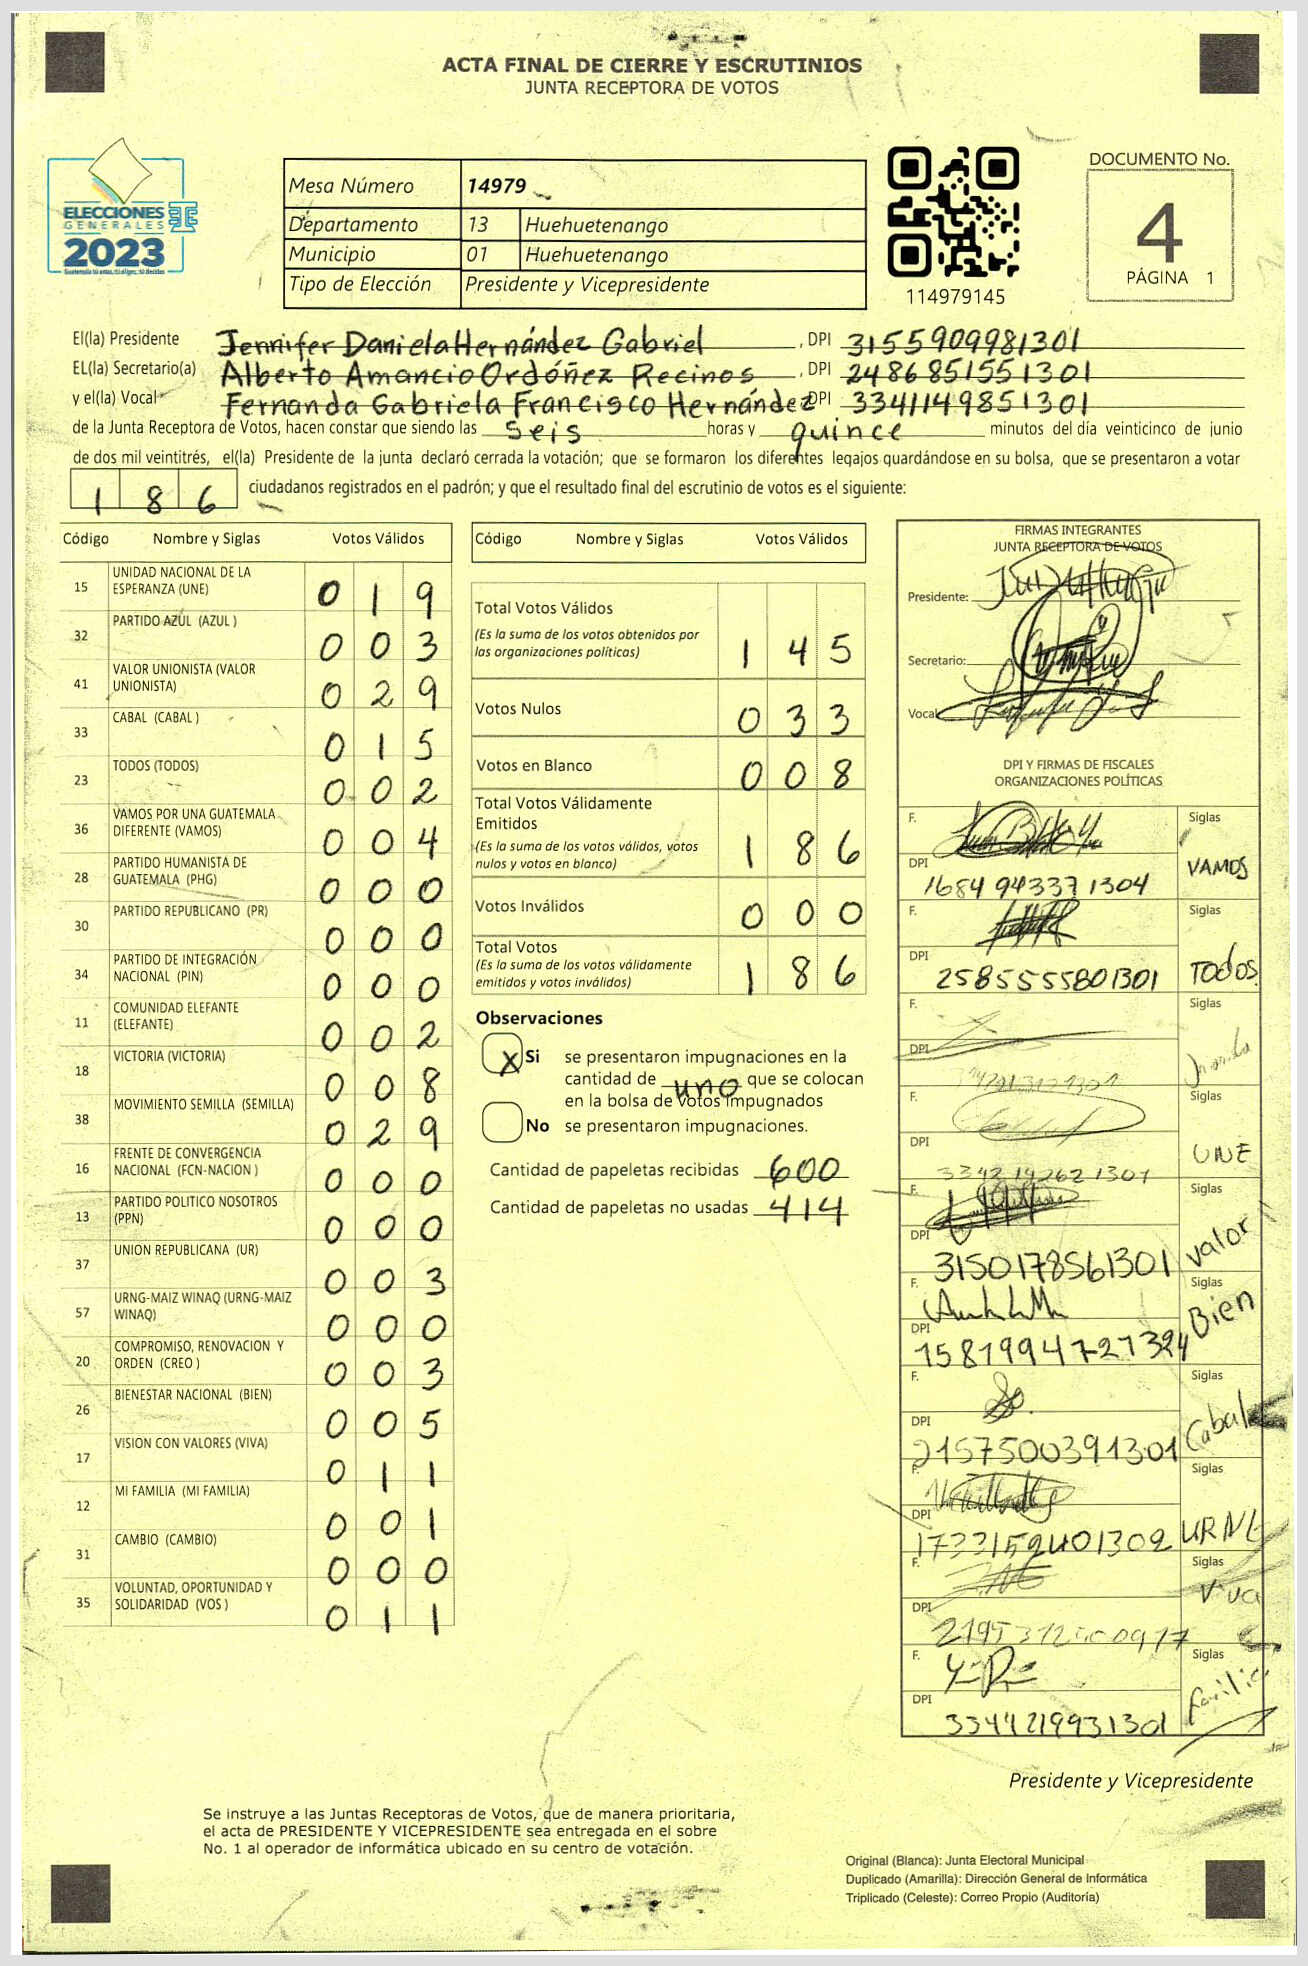 ACTA FINAL DE CIERRE Y ESCRUTINIOS
JUNTA RECEPTORA DE VOTOS
ELECCIONES
GENERALES
2023
Mesa Número 14979
Departamento 13 Huehuetenango
Municipio 01 Huehuetenango
Tipo de Elección Presidente y Vicepresidente
114979145
DOCUMENTO No.
4
PÁGINA 1
El(la) Presidente Jennifer Daniela Hernández Gabriel, DPI 3155909981301
EL(la) Secretario(a) Alberto Amancio Ordóñez Recinos, DPI 2486851551301
y el(la) Vocal Fernanda Gabriela Francisco Hernández DPI 3341149851301
de la Junta Receptora de Votos, hacen constar que siendo las seis horas y quince minutos del día veinticinco de junio
de dos mil veintitrés, el(la) Presidente de la junta declaró cerrada la votación; que se formaron los diferentes legajos guardándose en su bolsa, que se presentaron a votar
186 ciudadanos registrados en el padrón; y que el resultado final del escrutinio de votos es el siguiente:
Código Nombre y Siglas Votos Válidos
15 UNIDAD NACIONAL DE LA ESPERANZA (UNE) 019
32 PARTIDO AZUL (AZUL ) 003
41 VALOR UNIONISTA (VALOR UNIONISTA) 029
33 CABAL (CABAL ) 015
23 TODOS (TODOS) 002
36 VAMOS POR UNA GUATEMALA DIFERENTE (VAMOS) 004
28 PARTIDO HUMANISTA DE GUATEMALA (PHG) 000
30 PARTIDO REPUBLICANO (PR) 000
34 PARTIDO DE INTEGRACIÓN NACIONAL (PIN) 000
11 COMUNIDAD ELEFANTE (ELEFANTE) 002
18 VICTORIA (VICTORIA) 008
38 MOVIMIENTO SEMILLA (SEMILLA) 029
16 FRENTE DE CONVERGENCIA NACIONAL (FCN-NACION ) 000
13 PARTIDO POLITICO NOSOTROS (PPN) 000
37 UNION REPUBLICANA (UR) 003
57 URNG-MAIZ WINAQ (URNG-MAIZ WINAQ) 000
20 COMPROMISO, RENOVACION Y ORDEN (CREO ) 003
26 BIENESTAR NACIONAL (BIEN) 005
17 VISION CON VALORES (VIVA) 011
12 MI FAMILIA (MI FAMILIA) 001
31 CAMBIO (CAMBIO) 000
35 VOLUNTAD, OPORTUNIDAD Y SOLIDARIDAD (VOS ) 011
Código Nombre y Siglas Votos Válidos
Total Votos Válidos 145
(Es la suma de los votos obtenidos por
las organizaciones políticas)
Votos Nulos 033
Votos en Blanco 008
Total Votos Válidamente
Emitidos 186
(Es la suma de los votos válidos, votos
nulos y votos en blanco)
Votos Inválidos 000
Total Votos 186
(Es la suma de los votos válidamente
emitidos y votos inválidos)
Observaciones
X Si se presentaron impugnaciones en la
cantidad de uno que se colocan
en la bolsa de votos impugnados
No se presentaron impugnaciones.
Cantidad de papeletas recibidas 600
Cantidad de papeletas no usadas 414
FIRMAS INTEGRANTES
JUNTA RECEPTORA DE VOTOS
Presidente:
Secretario:
Vocal
DPI Y FIRMAS DE FISCALES
ORGANIZACIONES POLÍTICAS
F. Siglas
DPI 1684943371304 VAMOS
F. Siglas
DPI 2585555801301 TODOS
F. Siglas
DPI
F. Siglas
DPI UNE
F. Siglas
DPI 3150178561301 Valor
F. Siglas
DPI Bien
F. Siglas
DPI 2157500391301 Cabal
F. Siglas
DPI
F. Siglas
DPI Viva
F. Siglas
DPI 3344219931301 familia
Presidente y Vicepresidente
Se instruye a las Juntas Receptoras de Votos, que de manera prioritaria,
el acta de PRESIDENTE Y VICEPRESIDENTE sea entregada en el sobre
No. 1 al operador de informática ubicado en su centro de votación.
Original (Blanca): Junta Electoral Municipal
Duplicado (Amarilla): Dirección General de Informática
Triplicado (Celeste): Correo Propio (Auditoría)